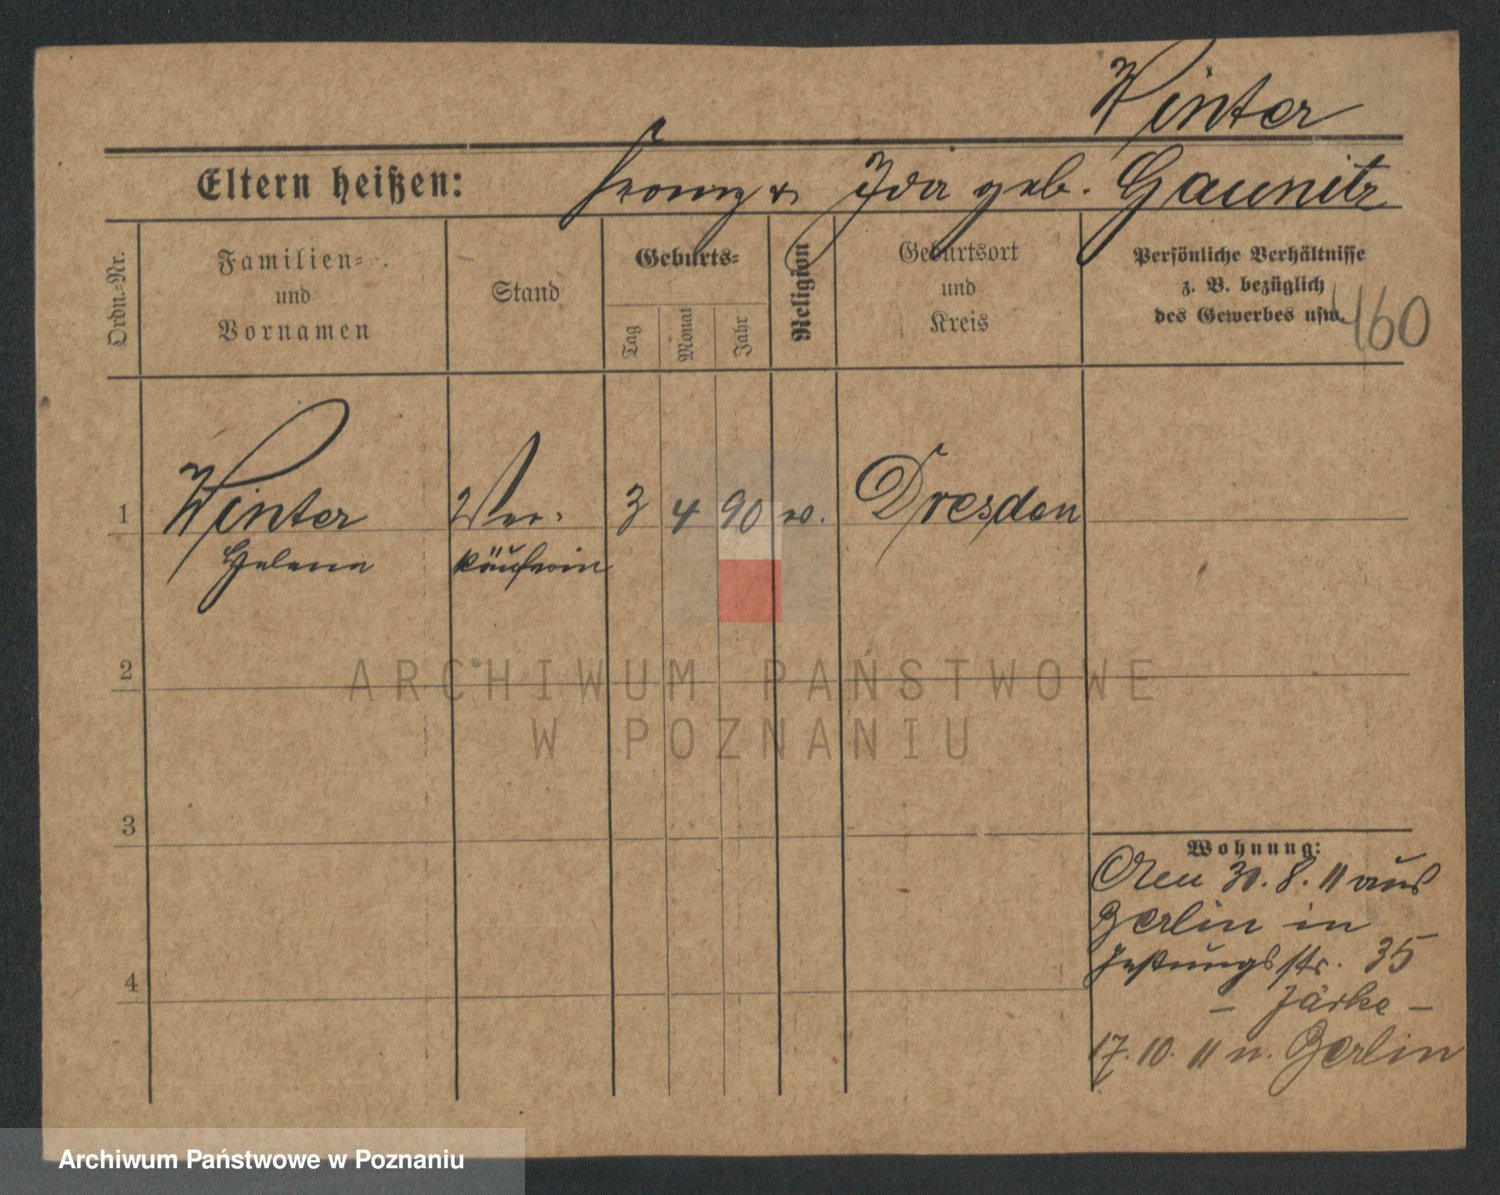 Winter
Eltern heißen: Franz u. Ida geb. Gaunitz
Ordn.-Nr.
Familien-
und
Vornamen
Stand
Geburts-
Tag
Monat
Jahr
Religion
Geburtsort
und
Kreis
Persönliche Verhältnisse
z. B. bezüglich
des Gewerbes usw.
160
1 Winter Ver- 3 4 90 Dresden
Helene käuferin
2
3
4
Wohnung:
Neu 30. 8. 11 aus
Berlin in
Festungsstr. 35
17. 10. 11 n. Berlin
ARCHIWUM PAŃSTWOWE
W POZNANIU
Archiwum Państwowe w Poznaniu